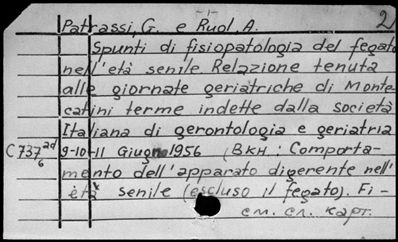 -1-
2
Patrassi, G. e Ruol, A.
Spunti di fisiopatologia del fegato
nell'età senile Relazione tenuta
alle giornate geriatriche di Monte-
catini terme indette dalla società
Italiana di gerontologia e geriatria
C 737 ad/6 9-10-11 Giugno 1956 (Вкн: Comporta-
mento dell'apparato digerente nell'
età senile (escluso il fegato). Fi-
см. сл. карт.